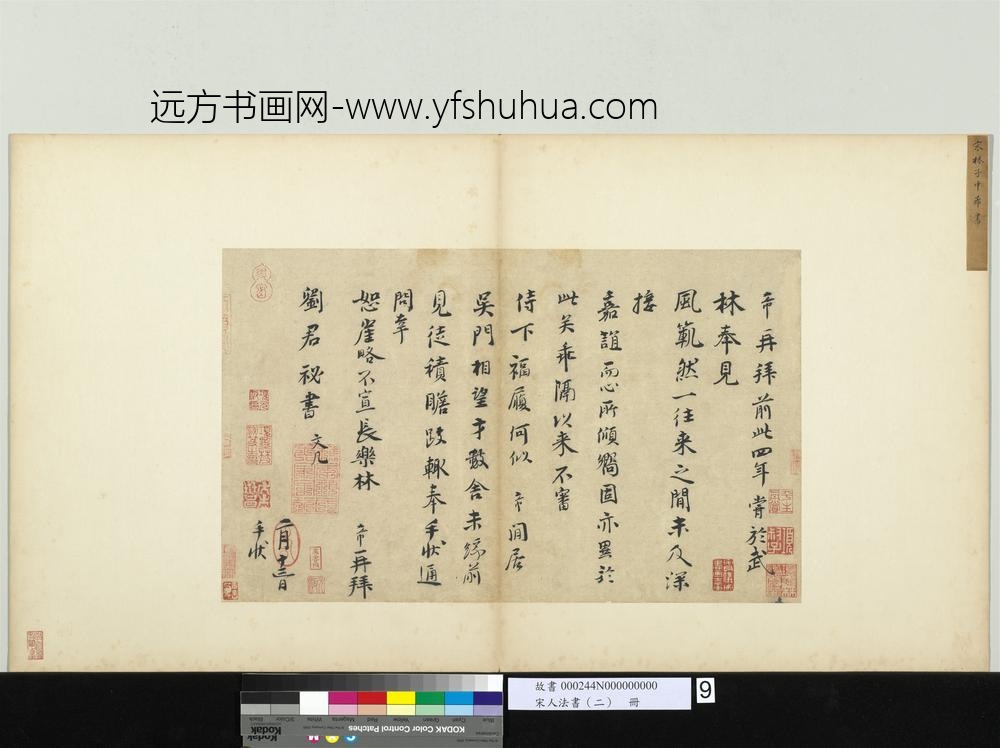 远方书画网-www.yfshuhua.com
宋林子中希書
希再拜前此四年嘗於武
林奉見
風範然一往来之間未及深
接
嘉誼而心所傾嚮固亦異於
此矣乖隔以来不審
侍下福履何似希閒居
吳門相望才數舍未緣前
見徒積瞻跂輒奉手狀通
問幸
恕崖略不宣長樂林希再拜
劉君祕書文几
二月十三日
手狀
故書 000244N000000000
宋人法書（二） 冊
9
KODAK Color Control Patches
Blue Cyan Green Yellow Red Magenta White 3/Color Black
Kodak